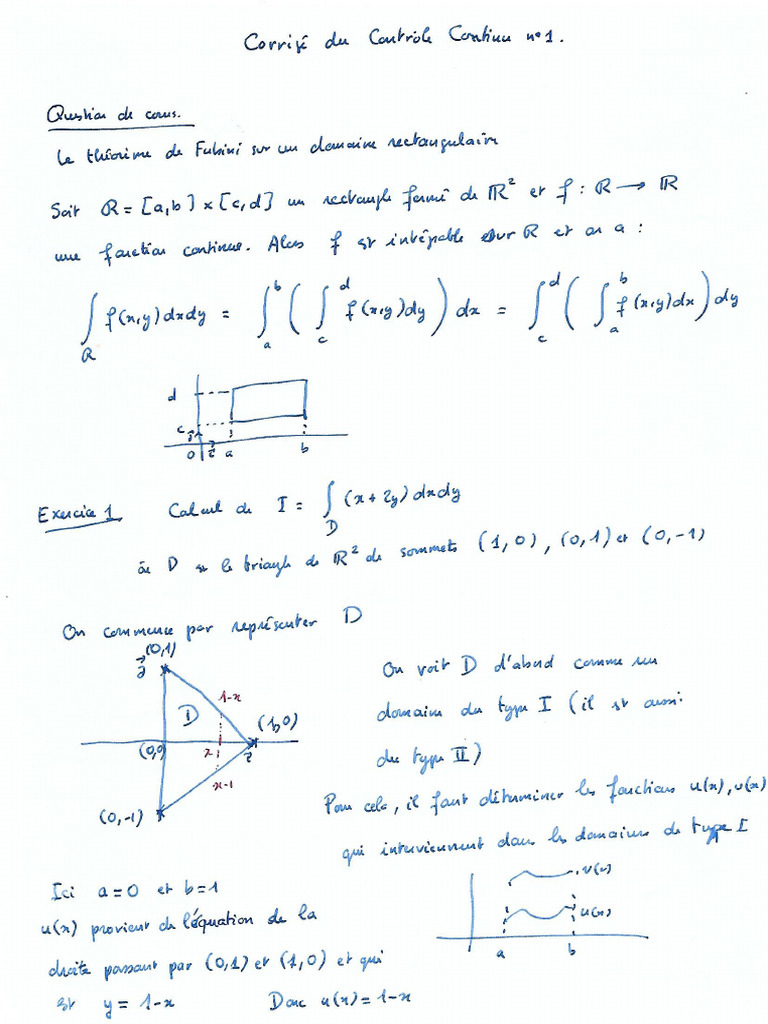 Corrigé du Contrôle Continu n°1.
Question de cours.
Le théorème de Fubini sur un domaine rectangulaire
Soit R = [a,b] × [c,d] un rectangle fermé de ℝ² et f : R → ℝ
une fonction continue. Alors f est intégrable sur R et on a :
∫_R f(x,y)dxdy = ∫_a^b ( ∫_c^d f(x,y)dy ) dx = ∫_c^d ( ∫_a^b f(x,y)dx ) dy
d
c
0 a b
Exercice 1 Calcul de I = ∫_D (x + 2y) dxdy
où D est le triangle de ℝ² de sommets (1,0), (0,1) et (0,-1)
On commence par représenter D
(0,1)
1-x
D
(1,0)
(0,0)
x
x-1
(0,-1)
On voit D d'abord comme un
domaine du type I (il est aussi
du type II)
Pour cela, il faut déterminer les fonctions u(x), v(x)
qui interviennent dans les domaines de type I
v(x)
u(x)
a b
Ici a=0 et b=1
u(x) provient de l'équation de la
droite passant par (0,1) et (1,0) et qui
est y = 1-x Donc u(x) = 1-x